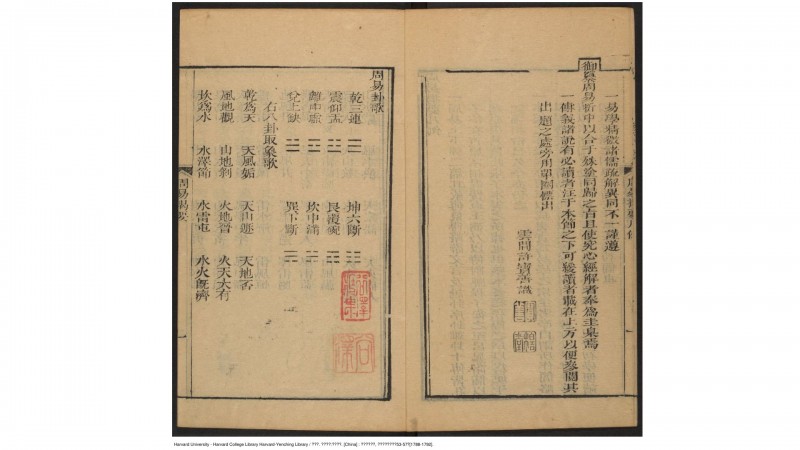 一易學精微諸儒疏解異同不一謹遵
御纂周易折中以合于殊塗同歸之旨且使究心經解者奉爲圭臬焉
一傳義諸說有必讀者注于本節之下可緩讀者載在上方以便參閱其
出題之處旁用單圈標出
雲間許寶善識
周易卦歌
乾三連 ☰ 坤六斷 ☷
震仰盂 ☳ 艮覆碗 ☶
離中虛 ☲ 坎中滿 ☵
兌上缺 ☱ 巽下斷 ☴
右八卦取象歌
乾爲天 天風姤 天山遯 天地否
風地觀 山地剝 火地晉 火天大有
坎爲水 水澤節 水雷屯 水火旣濟
周易揭要
Harvard University - Harvard College Library Harvard-Yenching Library / ???. ????:????. [China] : ??????, ????????53-57?[1788-1792].